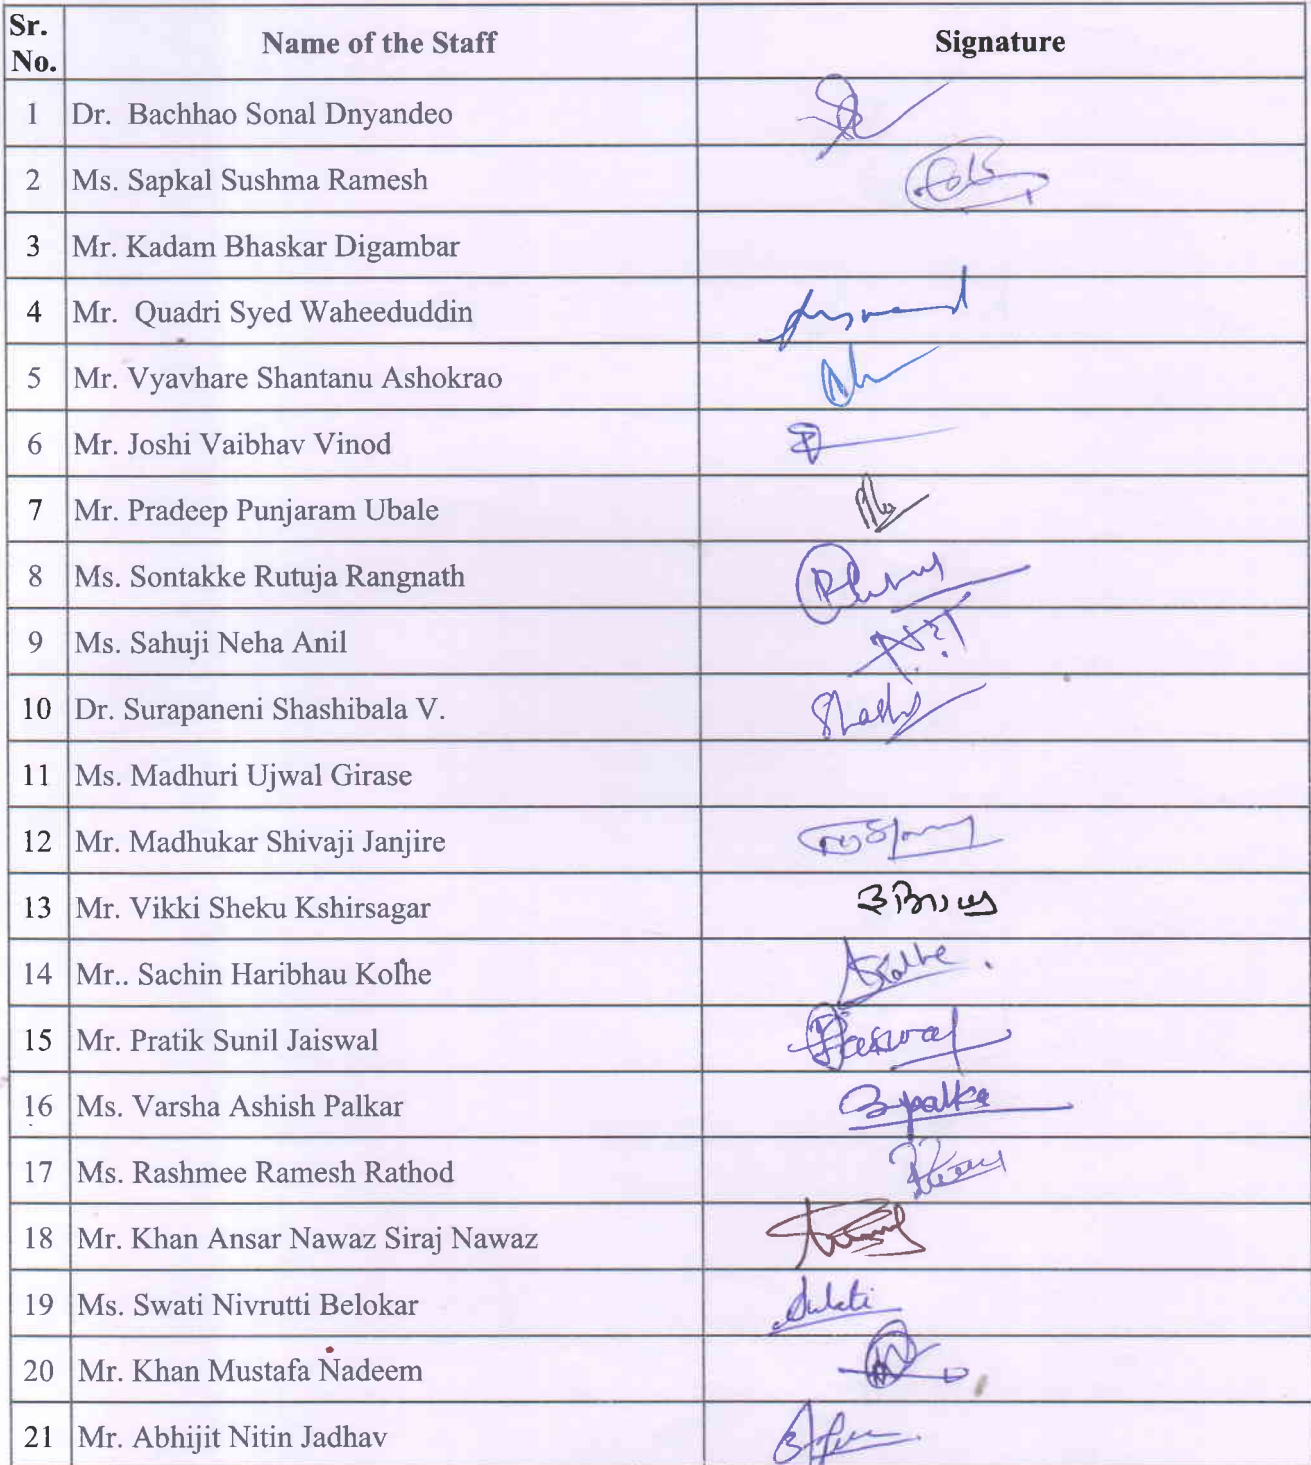 Sr. No. Name of the Staff Signature
1 Dr. Bachhao Sonal Dnyandeo
2 Ms. Sapkal Sushma Ramesh
3 Mr. Kadam Bhaskar Digambar
4 Mr. Quadri Syed Waheeduddin
5 Mr. Vyavhare Shantanu Ashokrao
6 Mr. Joshi Vaibhav Vinod
7 Mr. Pradeep Punjaram Ubale
8 Ms. Sontakke Rutuja Rangnath
9 Ms. Sahuji Neha Anil
10 Dr. Surapaneni Shashibala V.
11 Ms. Madhuri Ujwal Girase
12 Mr. Madhukar Shivaji Janjire
13 Mr. Vikki Sheku Kshirsagar
14 Mr.. Sachin Haribhau Kolhe
15 Mr. Pratik Sunil Jaiswal
16 Ms. Varsha Ashish Palkar
17 Ms. Rashmee Ramesh Rathod
18 Mr. Khan Ansar Nawaz Siraj Nawaz
19 Ms. Swati Nivrutti Belokar
20 Mr. Khan Mustafa Nadeem
21 Mr. Abhijit Nitin Jadhav